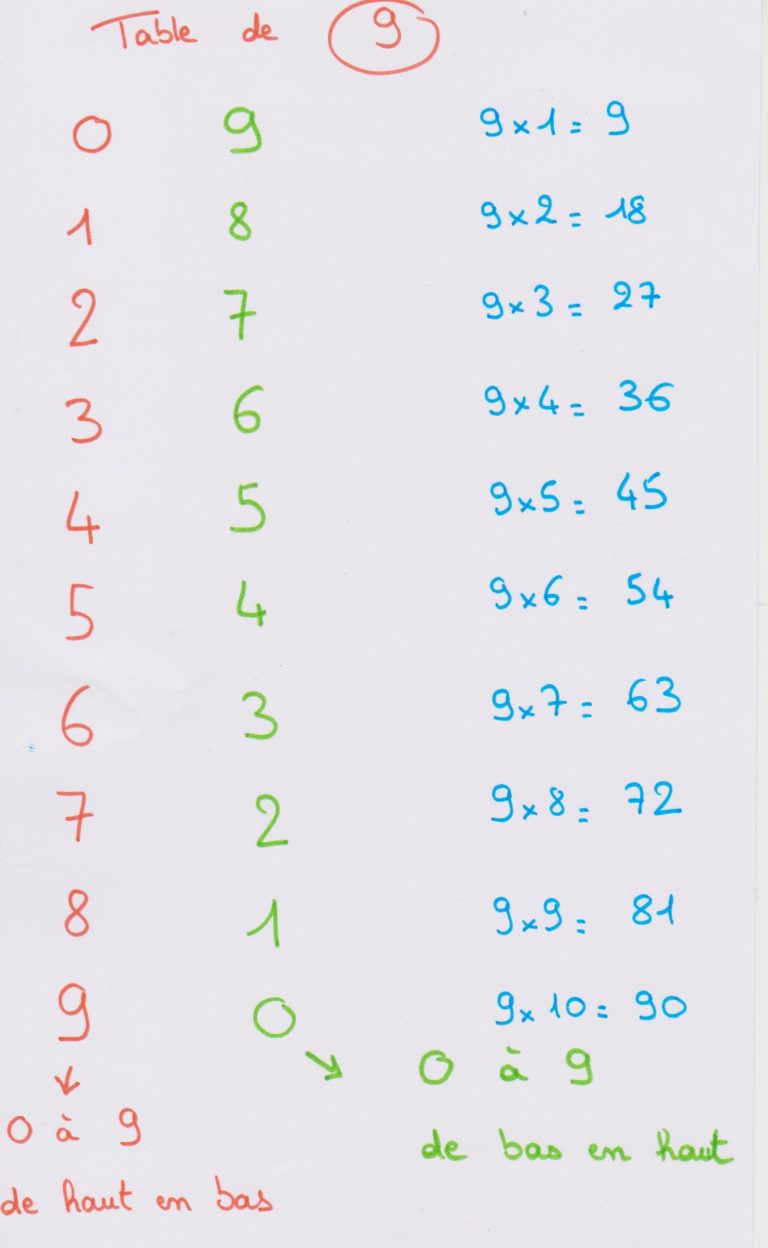 Table de 9
0 9 9 x 1 = 9
1 8 9 x 2 = 18
2 7 9 x 3 = 27
3 6 9 x 4 = 36
4 5 9 x 5 = 45
5 4 9 x 6 = 54
6 3 9 x 7 = 63
7 2 9 x 8 = 72
8 1 9 x 9 = 81
9 0 9 x 10 = 90
↓ ↘ 0 à 9
0 à 9
de bas en haut
de haut en bas